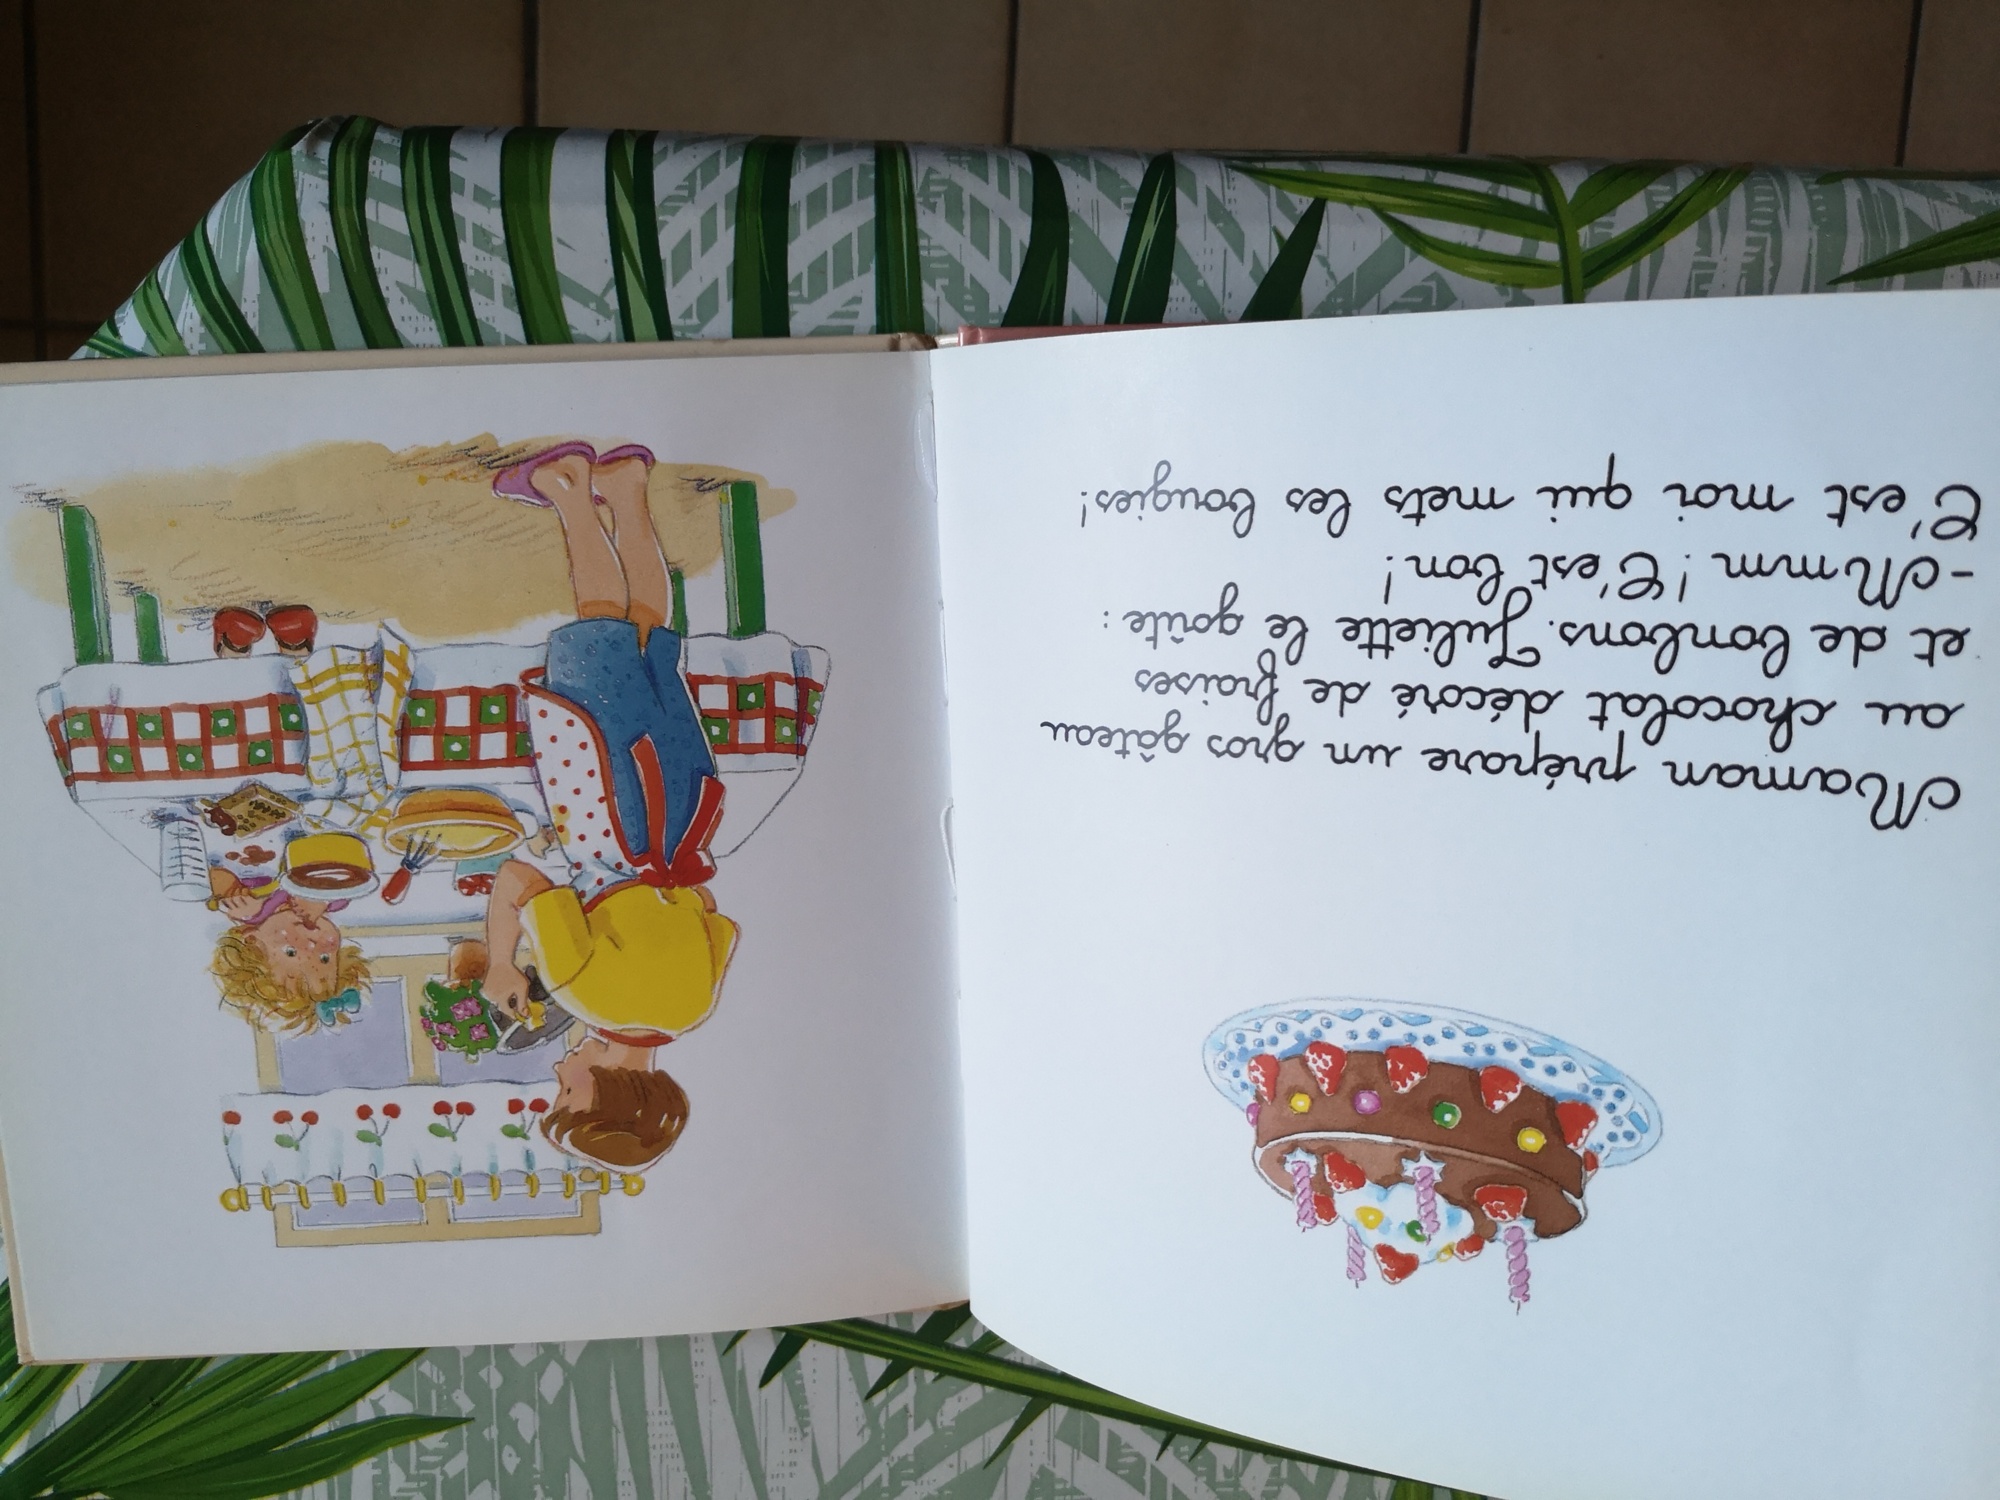 Maman prépare un gros gâteau
au chocolat décoré de fraises
et de bonbons. Juliette le goûte :
-Mmm ! C'est bon !
C'est moi qui mets les bougies!